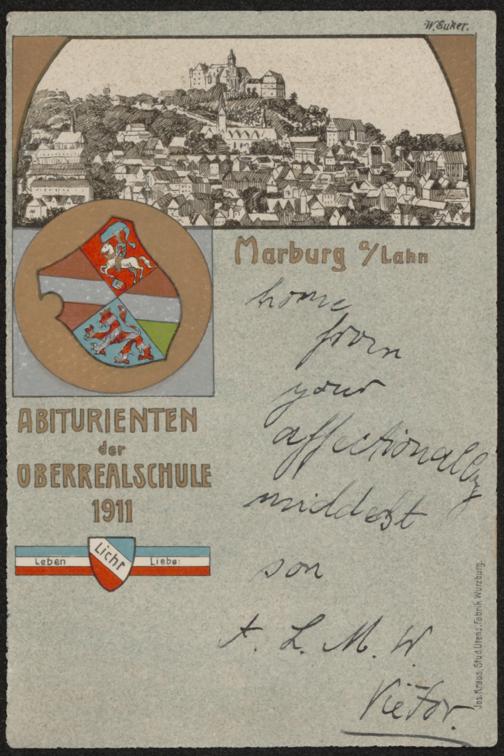 W. Euker.
Marburg a/Lahn
home
from
your
affectionally
middest
son
A. L. M. W.
Vietor.
ABITURIENTEN
der
OBERREALSCHULE
1911
Leben Licht Liebe:
Jos. Kraus, Stud. Utens. Fabrik Würzburg.